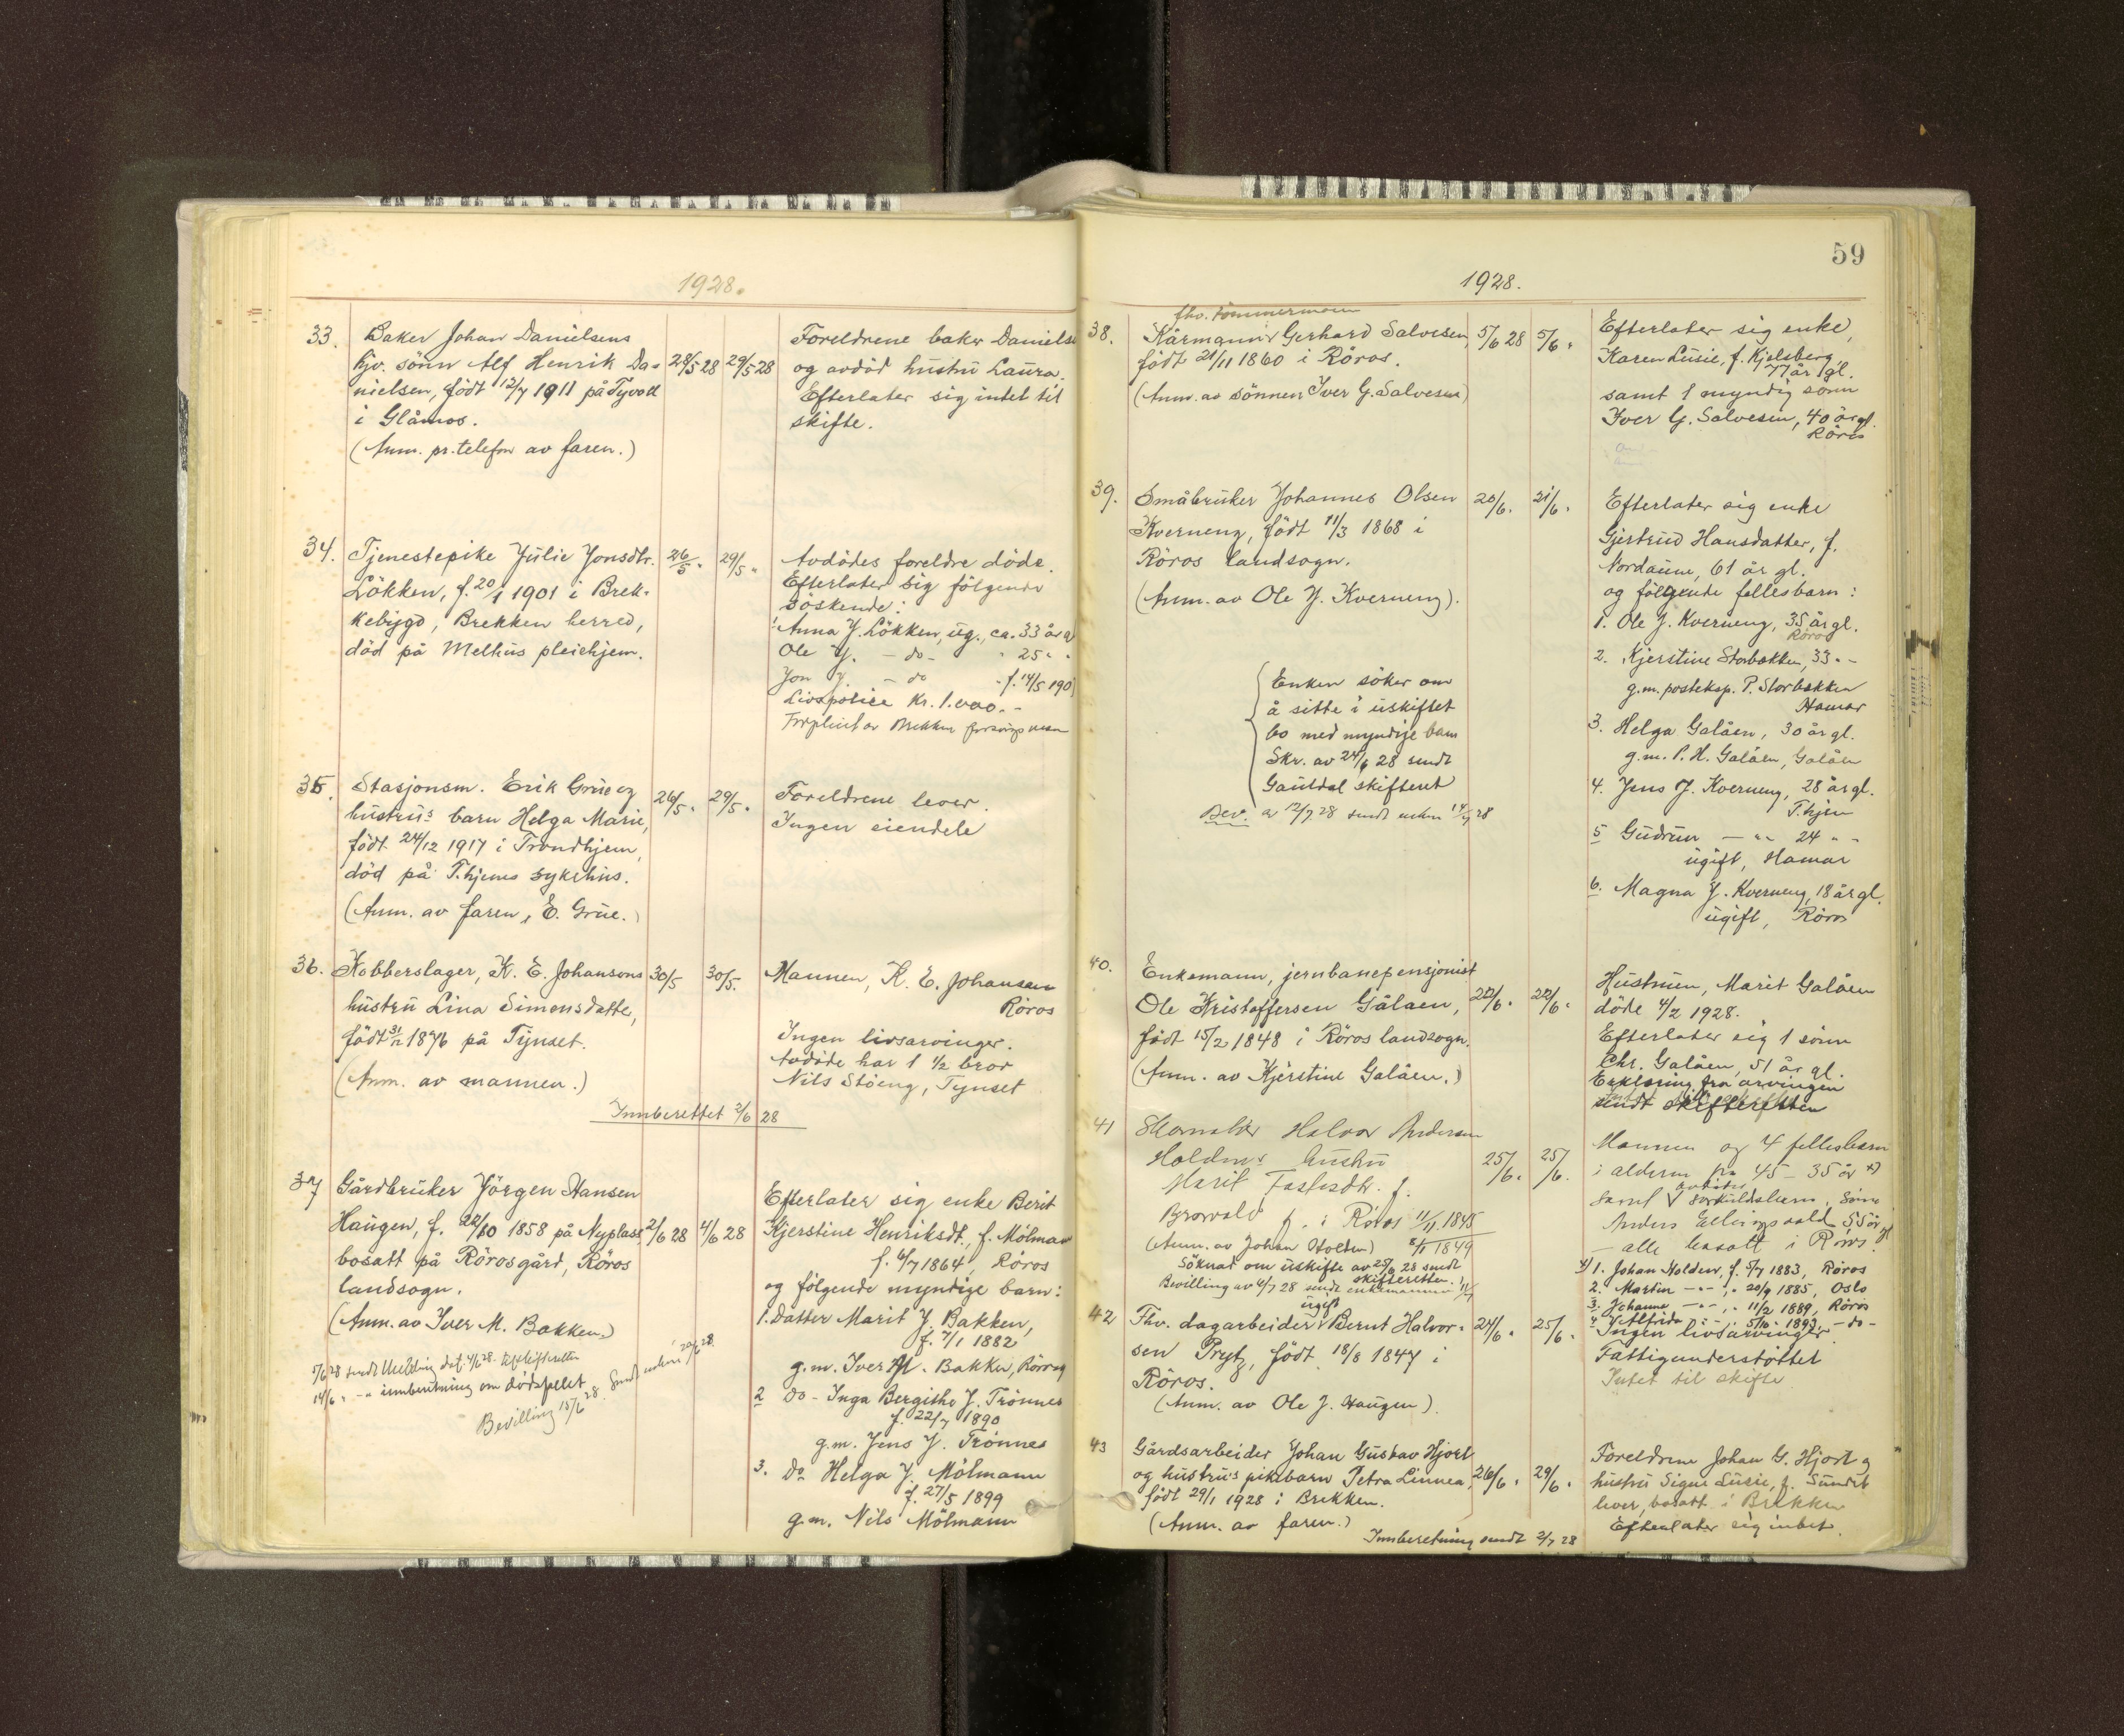 1928.
33. Baker Johan Danielsens
hjv. sönn Alf Henrik Da=
nielsen, født 12/7 1911 på Tyvoll
i Glåmos.
(Anm. pr. telefon av faren.)
28/5 28 29/5 28
Foreldrene baker Daniels
og avdöd hustru Laura.
Efterlater sig intet til
skifte.
34. Tjenestepike Julie Jonsdtr.
Lökken, f. 20/1 1901 i Brek-
kebygd, Brekken herred,
död på Melhus pleiehjem.
26/5 " 29/5 "
Avdödes foreldre döde.
Efterlater sig fölgende
söskende:
Anna J. Lökken, ug., ca. 33 år
Ole J. - do - " 25 " "
Jon J. - do - f. 14/5 190
Livspolice Kr. 1.000.-
Forpleiet av Brekken
35. Stasjonsm. Erik Grue og
hustrus barn Helga Marie,
født 24/12 1917 i Trondhjem,
död på T.hjems sykehus.
(Anm. av faren, E. Grue.)
26/5 " 29/5 "
Foreldrene lever.
Ingen eiendele
36. Kobberslager, K. E. Johansens
hustru Lina Simensdatter,
født 31/12 1876 på Tynset.
(Anm. av mannen.)
30/5 30/5.
Mannen, K. E. Johansen
Röros
Ingen livsarvinger.
Avdöde har 1 1/2 bror
Nils Stöeng, Tynset
Innberettet 2/6 28
37 Gårdbruker Jörgen Hansen
Haugen, f. 22/10 1858 på Nyplass,
bosatt på Rörosgård, Röros
landsogn.
(Anm. av Iver M. Bakken.)
2/6 28 4/6 28
5/6 28 sendt Melding
14/6 " - " innberetning om dödsfallet
Bevilling 15/6 28. Sendt enken 20/6 28.
Efterlater sig enke Berit
Kjerstine Henriksdt., f. Mölman
f. 6/7 1864, Röros
og fölgende myndige barn:
1. Datter Marit J. Bakken,
f. 7/1 1882
g.m. Iver M. Bakken, Röros
2 Do - Inga Bergithe J. Trönnes
f. 22/7 1890
g.m. Jens J. Trönnes
3. Do Helga J. Mölmann
f. 27/5 1899
g.m. Nils Mölmann
59
1928.
fhv. tømmermann
38. Kårmann Gerhard Salvesen,
født 21/11 1860 i Röros.
(Anm. av sönnen Iver G. Salvesen)
5/6 28 5/6 "
Efterlater sig enke,
Karen Lusie, f. Kjelsberg
77 år gl.
samt 1 myndig sönn
Iver G. Salvesen, 40 år gl.
Röros
39. Småbruker Johannes Olsen
Kverneng, född 11/3 1868 i
Röros landsogn.
(Anm. av Ole J. Kverneng).
20/6. 21/6.
Enken söker om
å sitte i uskiftet
bo med myndige barn
Skr. av 24/6 28 sendt
Gauldal skifterett
Bev. av 12/7 28 sendt enken 14/7 28
Efterlater sig enke
Gjertrud Hansdatter, f.
Nordaune, 61 år gl.
og fölgende fellesbarn:
1. Ole J. Kverneng, 35 år gl.
Röros
2. Kjerstine Storbekken, 33 " -
g.m. posteksp. P. Storbekken
Hamar
3. Helga Galåen, 30 år gl.
g.m. P. H. Galåen, Galåen
4. Jens J. Kverneng, 28 år gl.
T.hjem
5 Gudrun - " - 24 " -
ugift, Hamar
6. Magna J. Kverneng, 18 år gl.
ugift, Röros
40. Enkemann, jernbanepensjonist
Ole Kristoffersen Gålaen,
född 15/2 1848 i Röros landsogn.
(Anm. av Kjerstine Galåen.)
22/6. 22/6.
Hustruen, Marit Galåen
döde 4/2 1928.
Efterlater sig 1 sönn
Chr. Galåen, 51 år gl.
Erklæring fra arvingen
sendt skifteretten
41 Skomaker Halvor Andersen
Holdens hustru
Marit Tastesdtr. f.
f. i Röros 11/11 1845
8/1 1849
(Anm. av Johan Holden)
Söknad om uskifte av 25/6 28 sendt
skifteretten.
Bevilling av 4/7 28 sendt enkemannen 11/7
25/6. 25/6.
Mannen og 4 fellesbarn
i alderen fra 45 - 35 år x)
samt særkullsbarn, sönn
Anders 55 år gl
- alle bosatt i Röros
x) 1. Johan Holden, f. 5/7 1883, Röros
2. Martin - " - " 20/9 1885, Oslo
3. Johanna - " - " 11/2 1889, Röros
4. Alfrida - " - 5/10 1893, - do -
42 Fhv. dagarbeider ugift Bernt Halvor-
sen Prytz, født 18/8 1847 i
Röros.
(Anm. av Ole J. Haugen).
24/6. 25/6.
Ingen livsarvinger
Fattigunderstöttet
Intet til skifte
43 Gårdsarbeider Johan Gustav Hjort
og hustru's pikebarn Petra Linnea,
født 29/1 1928 i Brekken.
(Anm. av faren.)
26/6. 29/6.
Foreldrene Johan G. Hjort og
hustru Signe Lusie, f. Sundt
lever, bosatt i Brekken
Efterlater sig intet.
Innberetning sendt 2/7 28